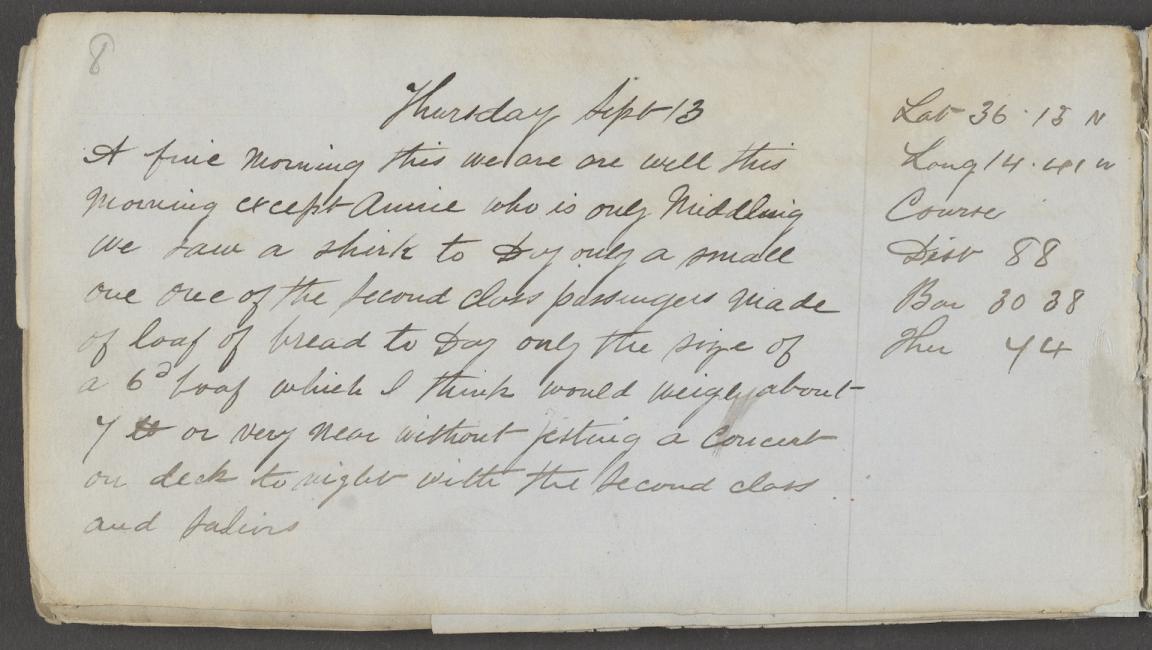 8
Thursday Sept 13
A fine Morning this we are are well this
Morning except Annie who is only Middling
we saw a shirk to Day only a small
one one of the second class passengers Made
of loaf of bread to Day only the size of
a 6d loaf which I think would weigh about
7 lb or very Near without jesting a Concert
on deck to night with the second class
and saliors
Lat 36 · 13 N
Long 14 · 41 W
Course
Dist 88
Bar 30 38
Ther 74